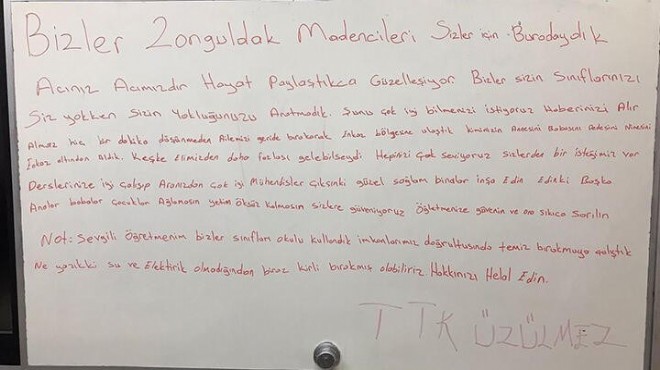 Bizler Zonguldak Madencileri Sizler için Buradaydık
Acınız Acımızdır Hayat Paylaştıkca Güzelleşiyor Bizler sizin Sınıflarınızı
Siz yokken Sizin Yokluğunuzu Aratmadık. Şunu çok iyi bilmenizi istiyoruz Haberinizi Alır
Almaz hiç bir dakika düşünmeden Ailemizi geride bırakarak Enkaz bölgesine ulaştık kimimizin Annesini Babasını Dedesini Ninesini
Enkaz altından Aldık. Keşke Elimizden daha fazlası gelebilseydi Hepinizi Çok seviyoruz sizlerden bir isteğimiz var
Derslerinize iyi çalışıp Aranızdan çok iyi Mühendisler Çıksınki güzel sağlam binalar inşa Edin Edinki Başka
Analar babalar çocuklar Ağlamasın yetim Öksüz kalmasın sizlere güveniyoruz Öğretmenize güvenin ve ona sıkıca sarılın
Not: Sevgili Öğretmenim bizler sınıfları okulu kullandık imkanlarımız doğrultusunda temiz bırakmaya çalıştık
Ne yazıkki su ve Elektirik olmadığından biraz kirli bırakmış olabiliriz Hakkınızı Helal Edin.
TTK ÜZÜLMEZ